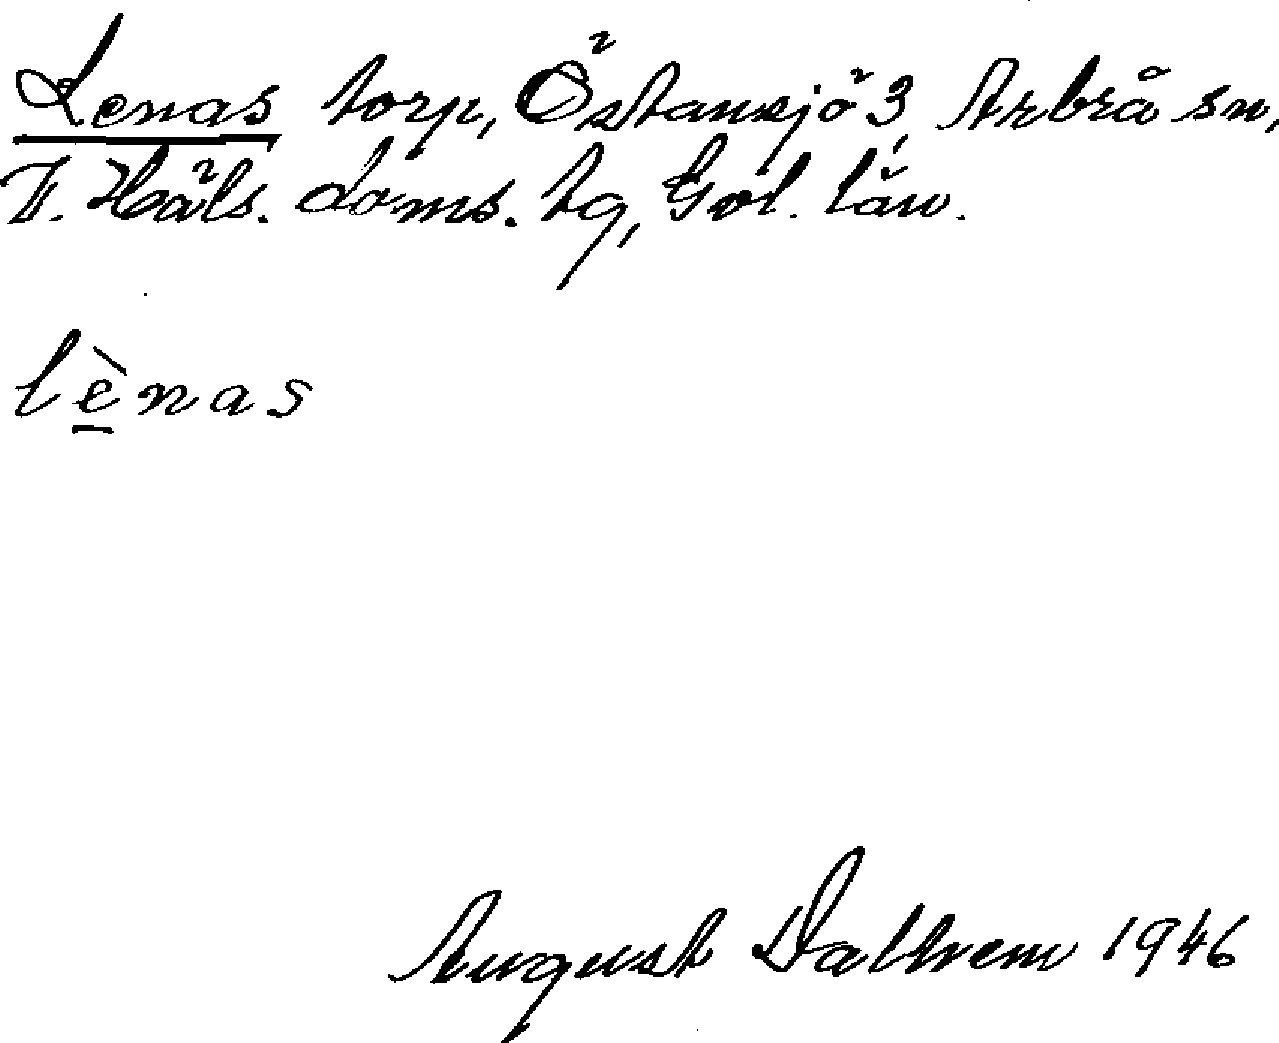 Lenas torp, Östansjö 3, Arbrå sn,
V. Häls. doms. tg, Gvl. län.
lènas
August Dalhem 1946